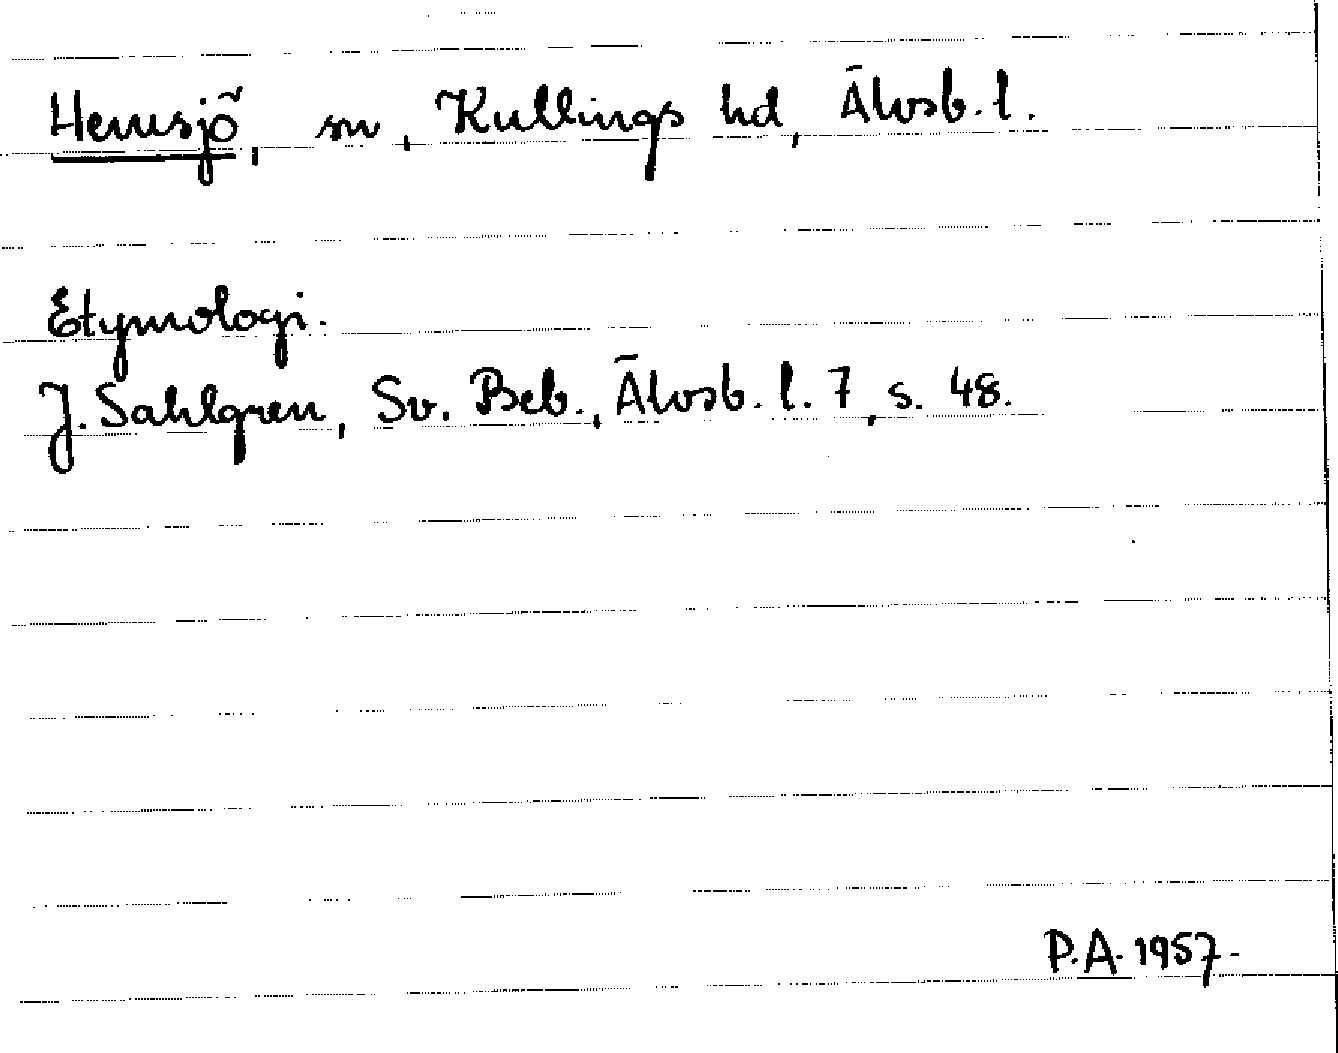 Hemsjö, sn, Kullings hd, Älvsb. l.
Etymologi.
J. Sahlgren, Sv. Beb., Älvsb. l. 7, s. 48.
P.A. 1957.